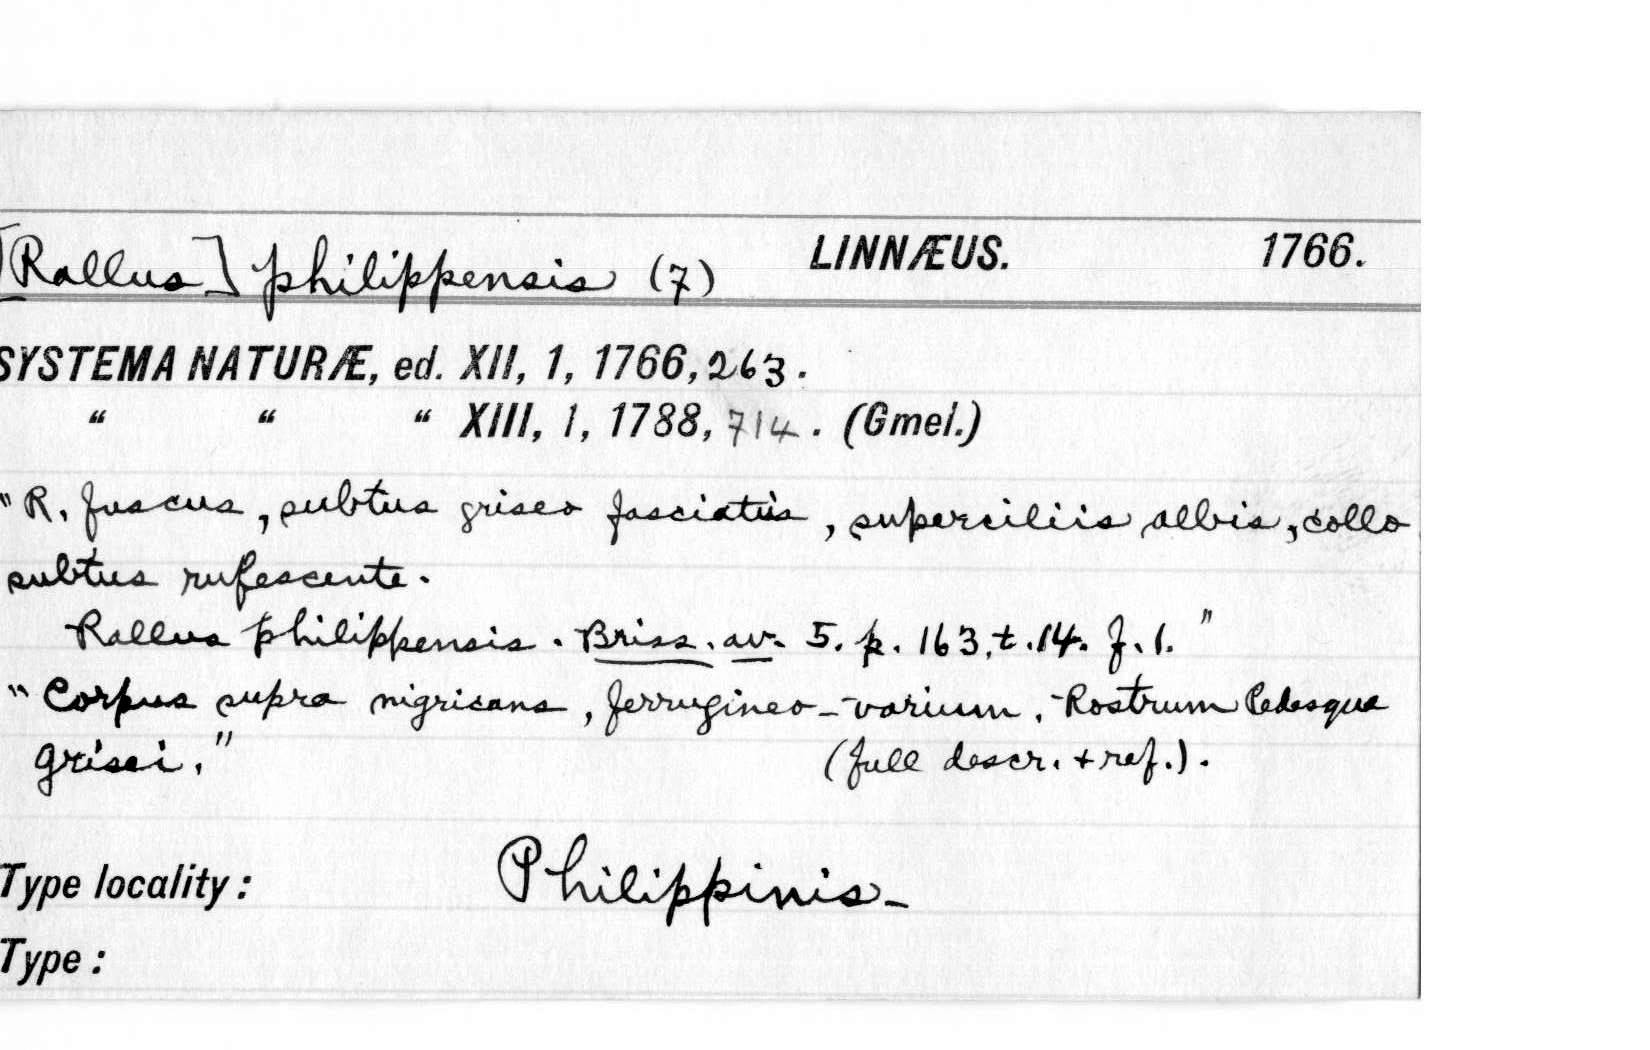 [Rallus] philippensis (7) LINNÆUS. 1766.
SYSTEMA NATURÆ, ed. XII, 1, 1766, 263.
“ “ “ XIII, 1, 1788, 714. (Gmel.)
"R. fuscus, subtus griseo fasciatus, superciliis albis, collo
subtus rufescente.
Rallus philippensis. Briss. av. 5. p. 163, t. 14. f. 1."
"Corpus supra nigricans, ferrugineo-varium. Rostrum Pedesque
grisei." (full descr. + ref.).
Type locality: Philippinis-
Type: